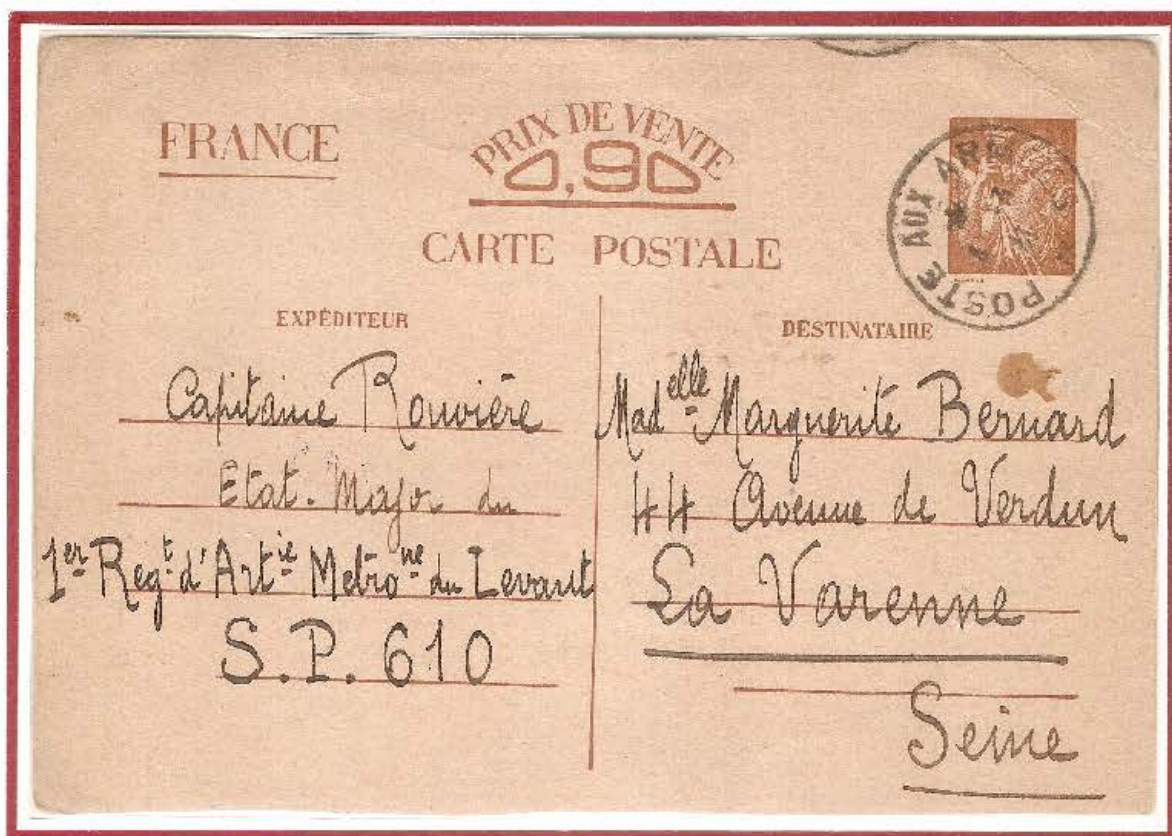 FRANCE
PRIX DE VENTE
0,90
CARTE POSTALE
POSTE AUX ARMÉES
EXPÉDITEUR
Capitaine Rouvière
Etat-Major du
1er Regt d'Artie Metrone du Levant
S.P. 610
DESTINATAIRE
Madelle Marguerite Bernard
44 Avenue de Verdun
La Varenne
Seine